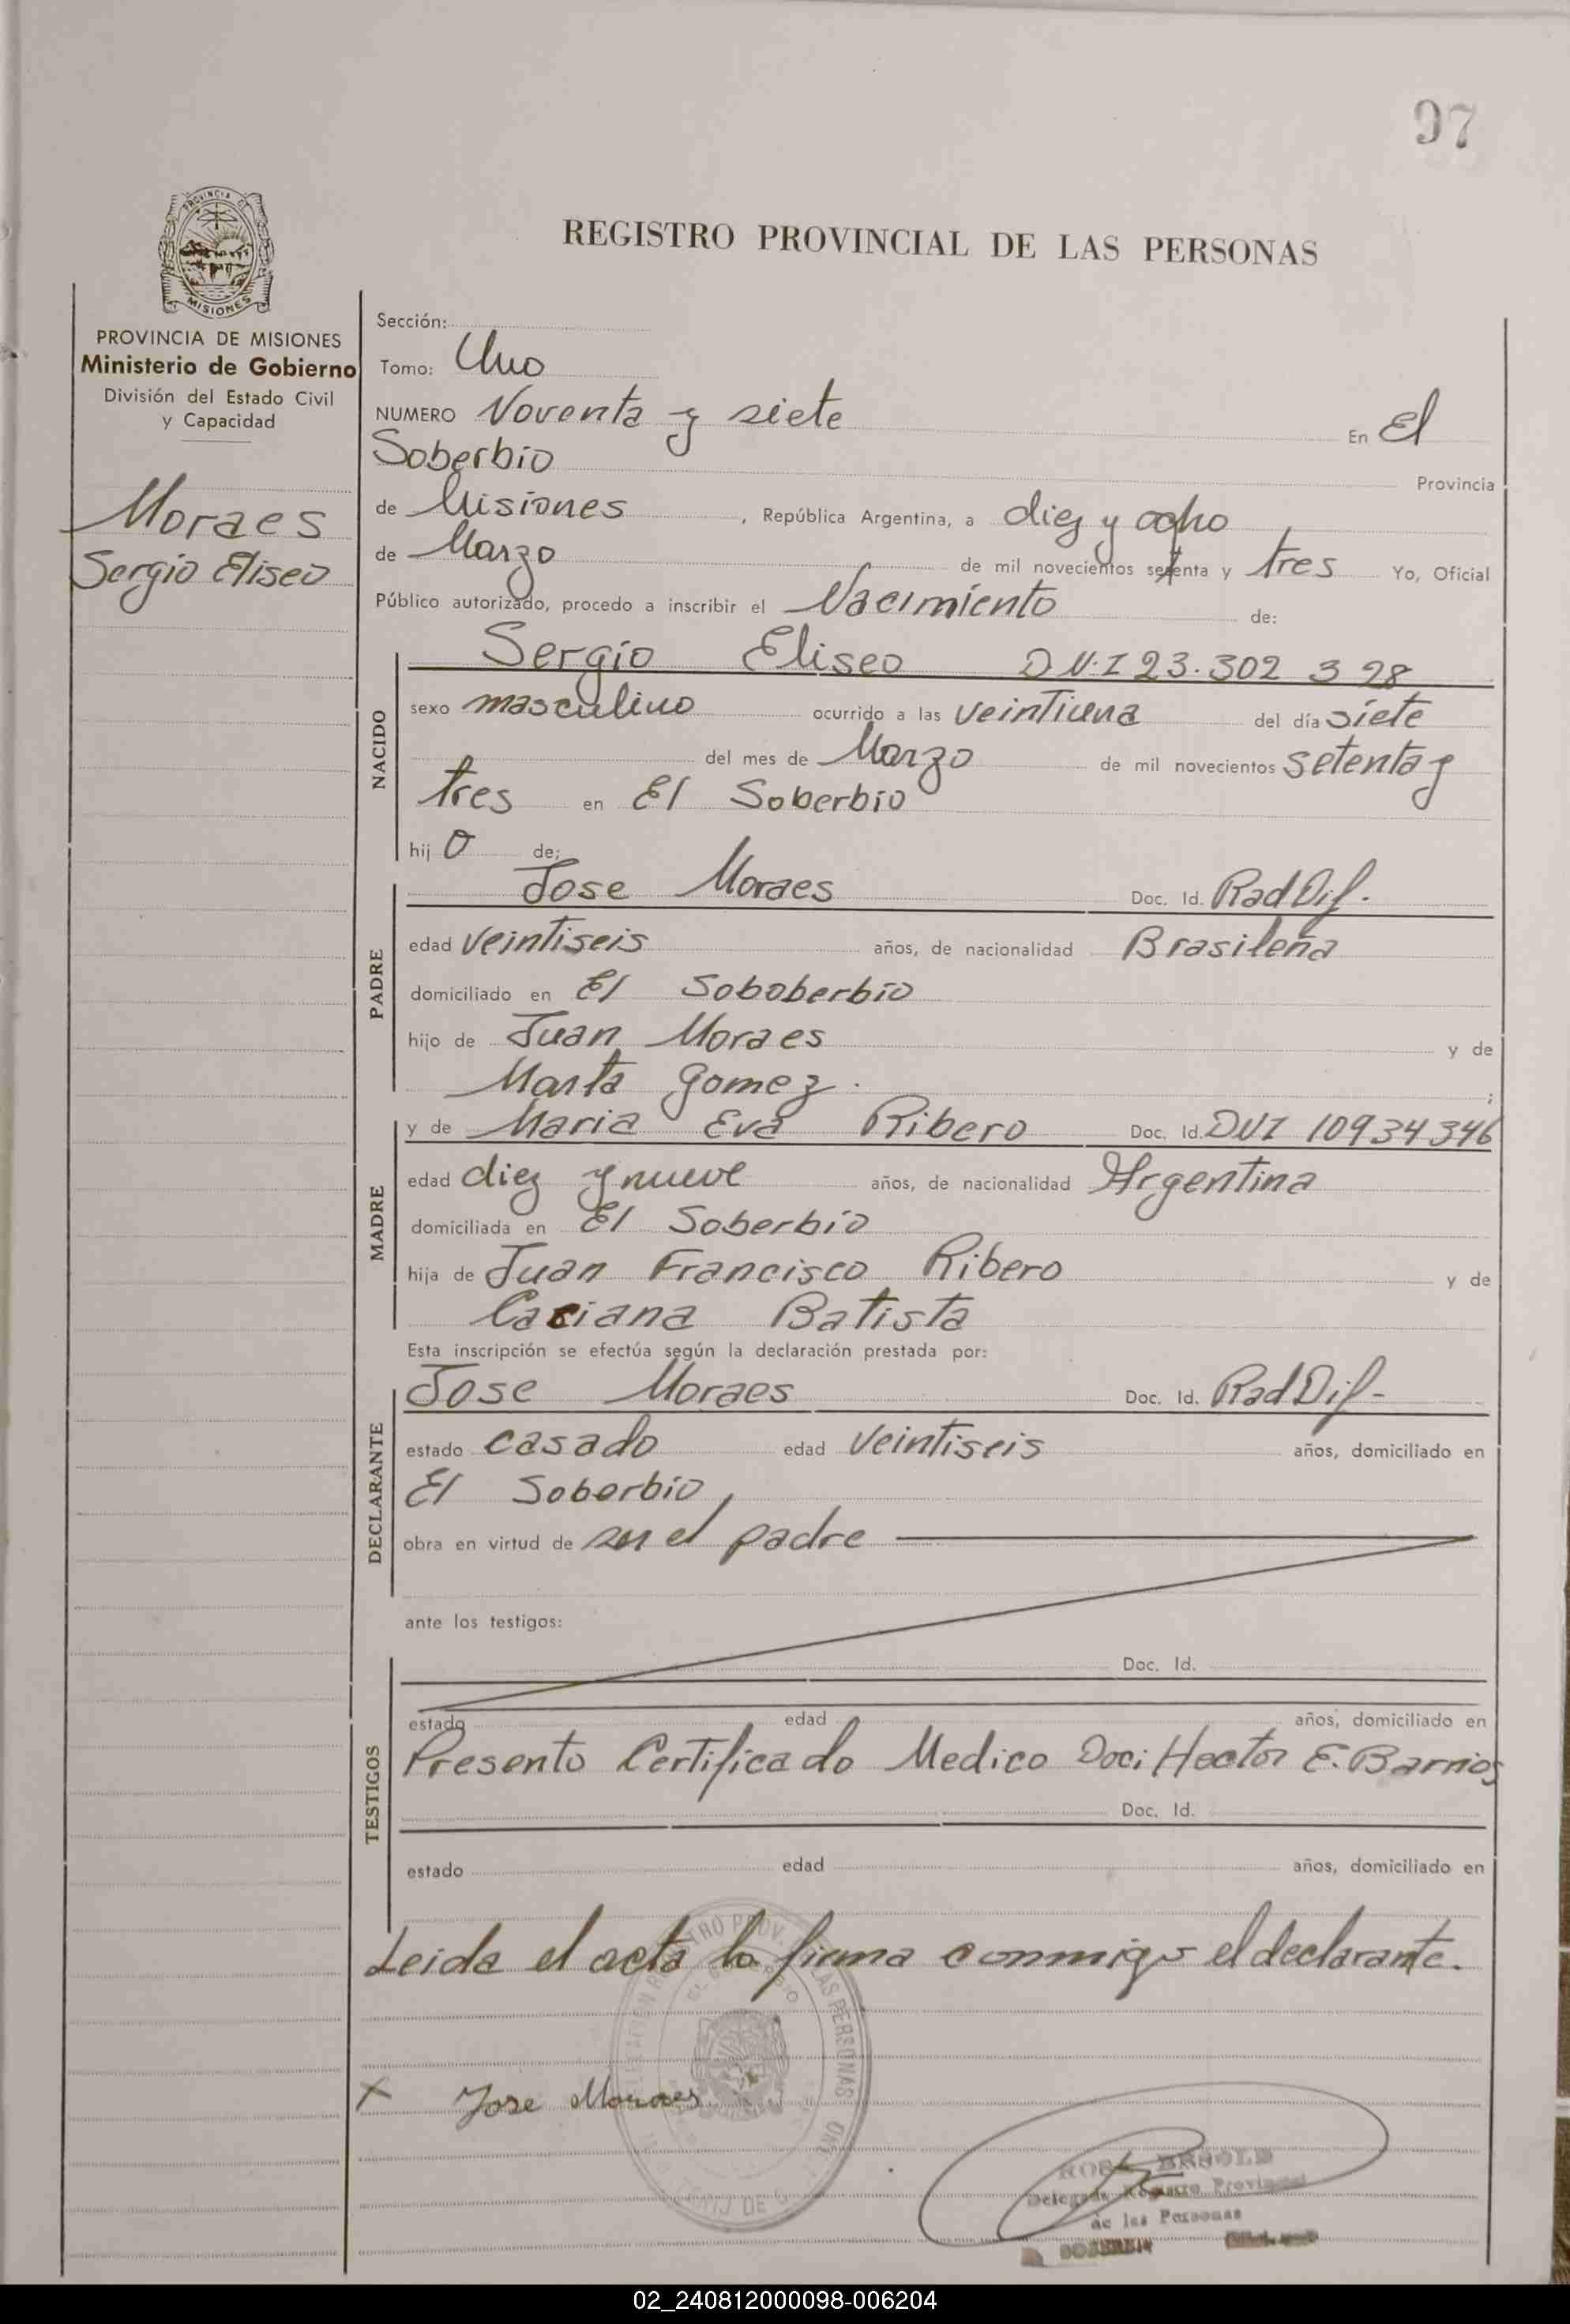 97
PROVINCIA DE
MISIONES
REGISTRO PROVINCIAL DE LAS PERSONAS
PROVINCIA DE MISIONES
Ministerio de Gobierno
División del Estado Civil
y Capacidad
Moraes
Sergio Eliseo
Sección:
Tomo: Uno
NUMERO Noventa y siete En El
Soberbio Provincia
de Misiones, República Argentina, a diez y ocho
de Marzo de mil novecientos setenta y tres Yo, Oficial
Público autorizado, procedo a inscribir el Nacimiento de:
NACIDO
Sergio Eliseo D.N.I 23.302 328
sexo masculino ocurrido a las veintiuna del día siete
del mes de Marzo de mil novecientos setenta y
tres en El Soberbio
hijo de:
PADRE
Jose Moraes Doc. Id. Rad Dif.
edad veintiseis años, de nacionalidad Brasileña
domiciliado en El Soboberbio
hijo de Juan Moraes y de
Marta Gomez ;
MADRE
y de Maria Eva Ribero Doc. Id. DNI 10934346
edad diez y nueve años, de nacionalidad Argentina
domiciliada en El Soberbio
hija de Juan Francisco Ribero y de
Casiana Batista
Esta inscripción se efectúa según la declaración prestada por:
DECLARANTE
Jose Moraes Doc. Id. Rad Dif-
estado casado edad veintiseis años, domiciliado en
El Soberbio,
obra en virtud de ser el padre
ante los testigos:
TESTIGOS
Doc. Id.
estado edad años, domiciliado en
Presento Certificado Medico Doc: Hector E. Barrios
Doc. Id.
estado edad años, domiciliado en
Leida el acta la firma conmigo el declarante.
X Jose Moraes
Delegada Registro Provincial
de las Personas
02_240812000098-006204